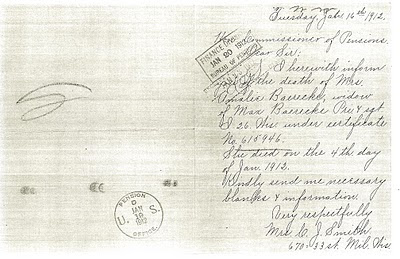 Tuesday, Jan. 16th 1912.
Commissioner of Pensions.
Dear Sir:
I herewith inform
of the death of Mrs.
Boerecke, widow
of Max Boerecke Pri & sgt
I 26 Wis. under certificate
No 615946.
She died on the 4th day
of Jan. 1912.
Kindly send me necessary
blanks & information.
Very respectfully
Mrs C. J. Smith
670-33 st. Mil. Wis.
FINANCE
JAN 20 1912
BUREAU OF
PENSION
U. S.
JAN
1912
OFFICE